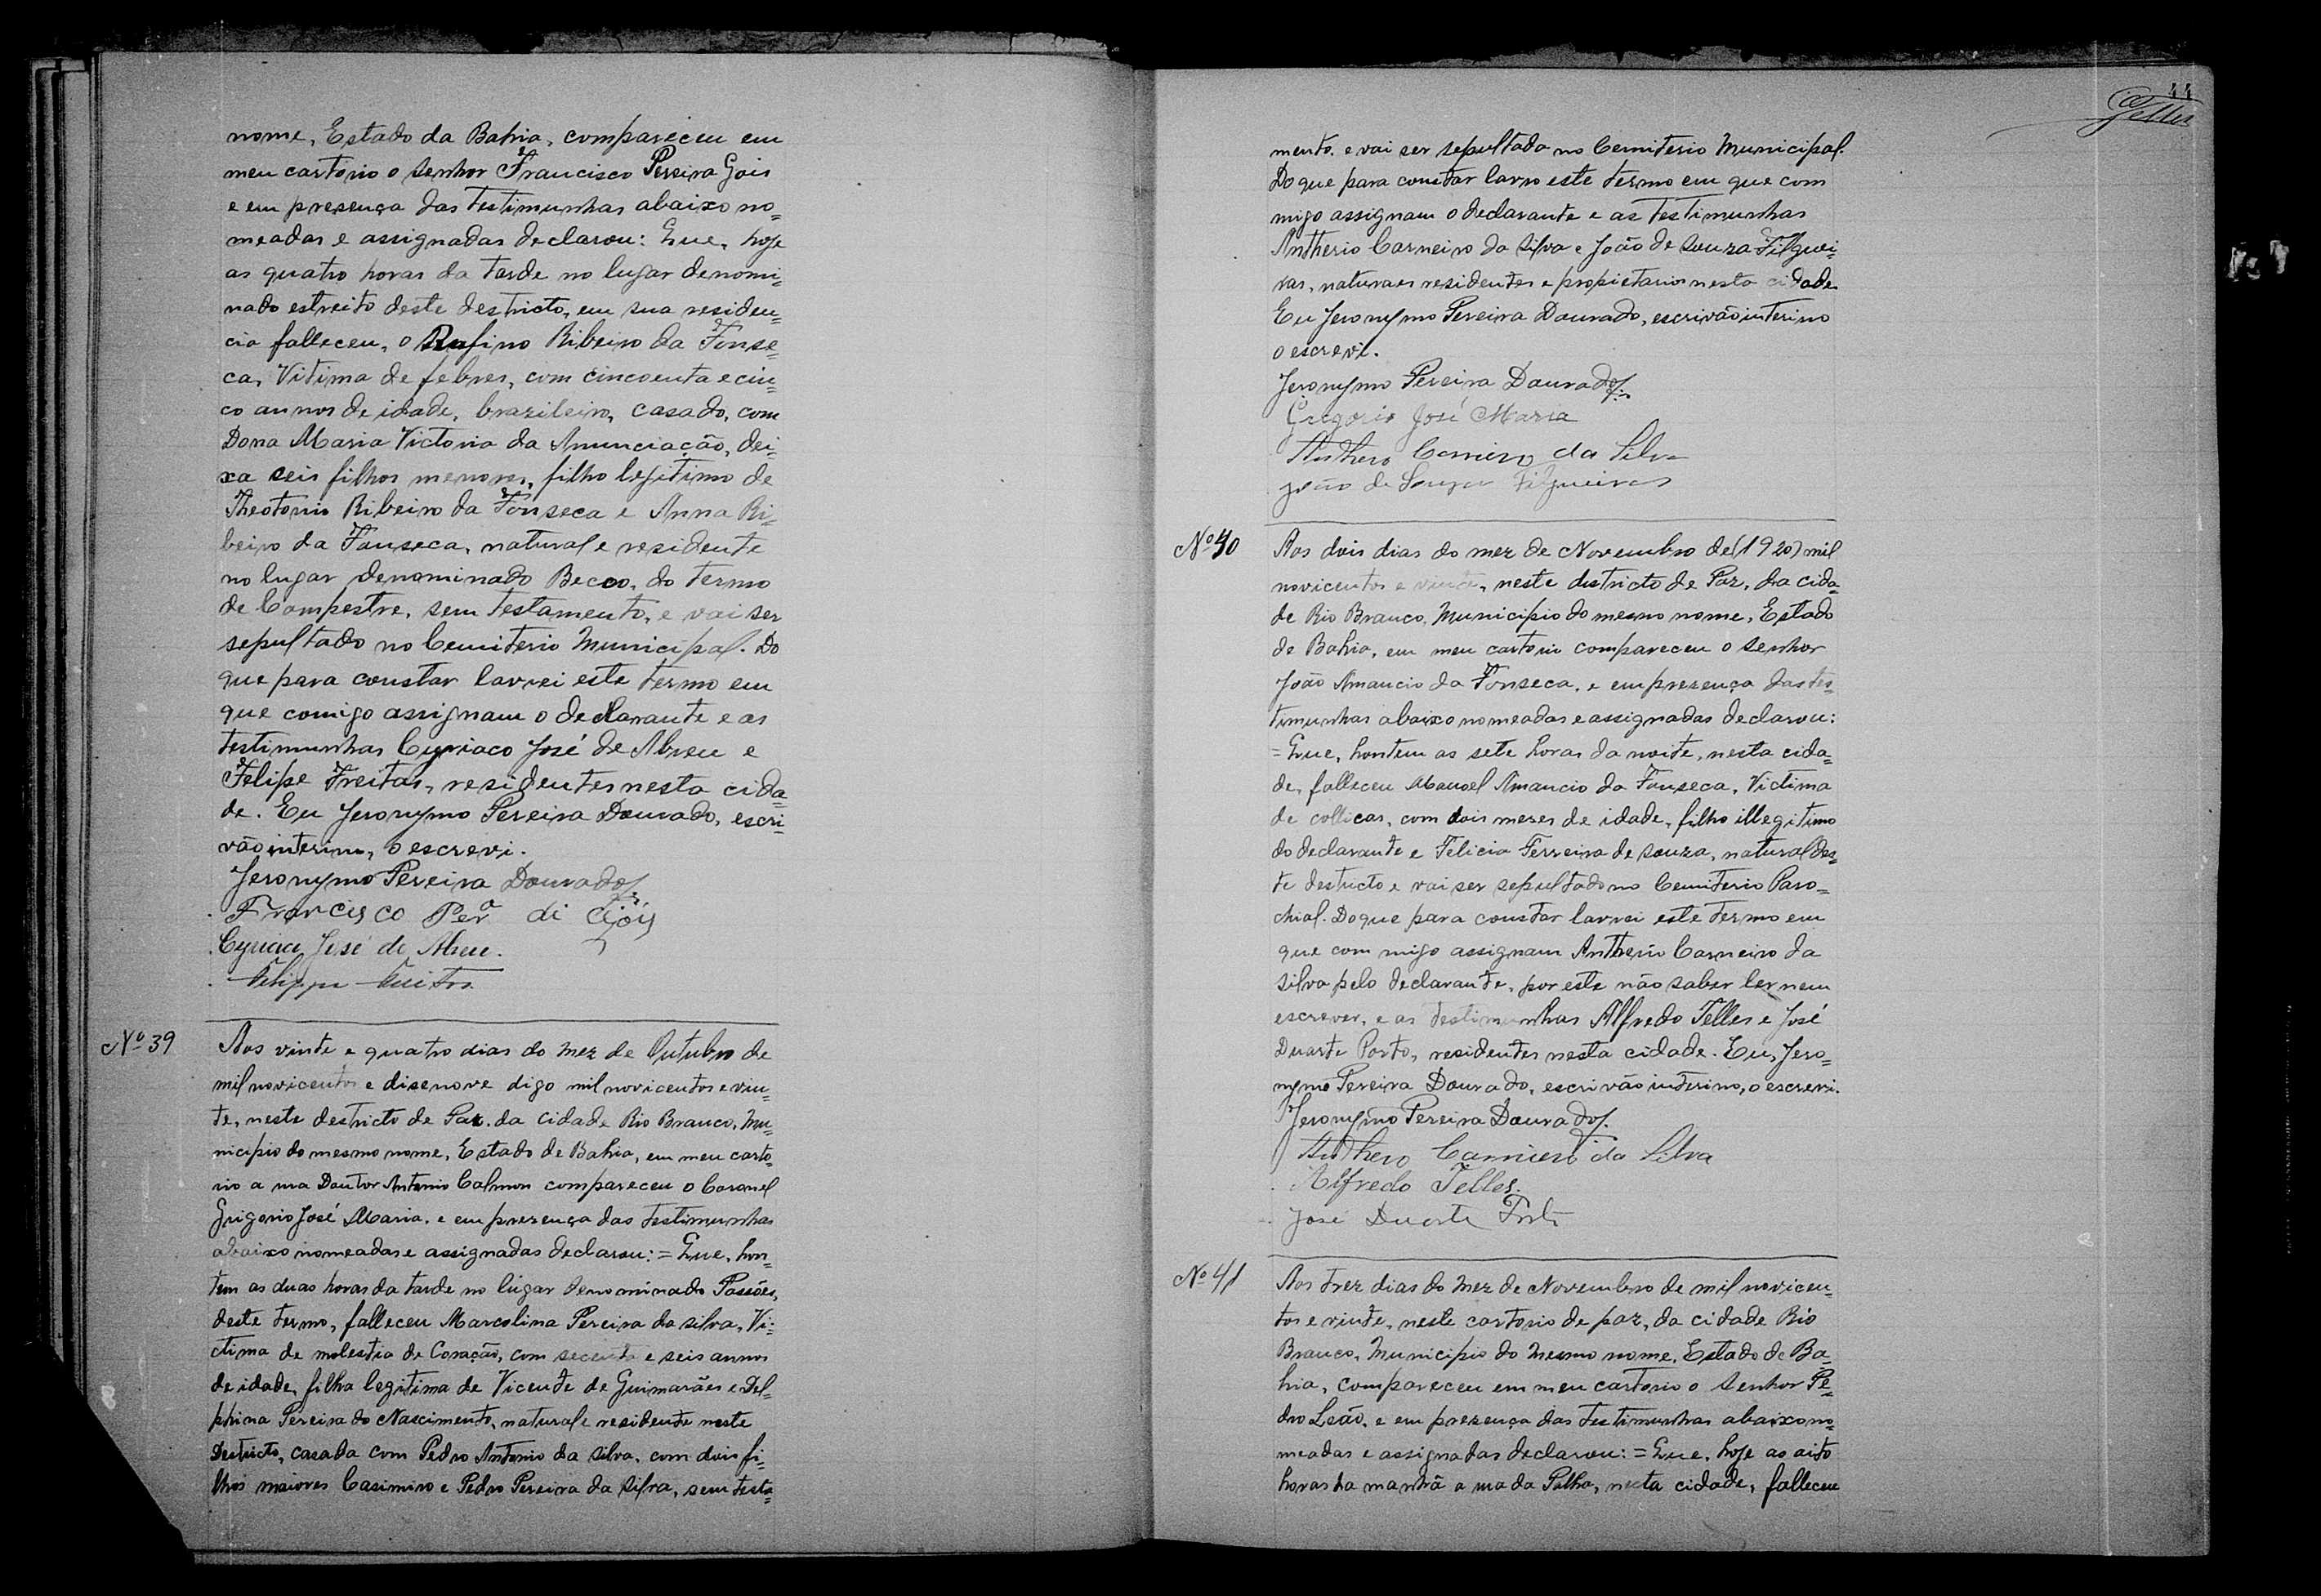 nome, Estado da Bahia, compareceu em
meu cartorio o senhor Francisco Pereira Gois
e em presença das testimunhas abaixo no=
meadas e assignadas declarou: Que, hoje
as quatro horas da tarde no lugar denomi=
nado estreito deste destricto, em sua residen=
cia falleceu, o Rufino Ribeiro da Fonse=
ca, Vitima de febres, com cincoenta e cin=
co annos de idade, brazileiro, casado, com
Dona Maria Victoria da Anunciação, dei=
xa seis filhos menores, filho legitimo de
Theotonio Ribeiro da Fonseca e Anna Ri=
beiro da Fonseca, natural e residente
no lugar denominado Becco, do termo
de Campestre, sem testamento, e vai ser
sepultado no Cemiterio Municipal. Do
que para constar lavrei este termo em
que comigo assignam o declarante e as
testimunhas Cyriaco José de Abreu e
Felipe Freitas, residentes nesta cida=
de. Eu Jeronymo Pereira Dourado, escri=
vão interino, o escrevi.
Jeronymo Pereira Dourado
Francisco Perª di Góis
Cyriaco José de Abreu.
Felippe Freitas
Nº 39
Aos vinte e quatro dias do mez de Outubro de
mil novicentos e disenove digo mil novicentos e vin=
te, neste destricto de Paz. da cidade Rio Branco, Mu=
nicipio do mesmo nome, Estado de Bahia, em meu carto=
rio a rua Doutor Antonio Calmon compareceu o Coronel
Grigorio José Maria. e em presença das testimunhas
abaixo nomeadas e assignadas declarou: = Que, hon=
tem as duas horas da tarde no lugar denominado Passões,
deste termo, falleceu Marcolina Pereira da silva, Vi=
ctima de molestia de Coração, com secenta e seis annos
de idade, filha legitima de Vicente de Guimarães e Del=
phina Pereira do Nascimento, natural e residente neste
Destricto, casada com Pedro Antonio da silva, com dois fi=
lhos maiores Casimiro e Pedro Pereira da Silva, sem testa=
44
Telles
mento. e vai ser sepultada no Cemiterio Municipal.
Do que para constar lavro este termo em que com
migo assignam o declarante e as testimunhas
Antherio Carneiro da Silva e João de Souza Filguei=
ras, naturaes residentes e propietarios nesta cidade
Eu Jeronymo Pereira Dourado, escrivão interino
o escrevi.
Jeronymo Pereira Dourado
Gregorio José Maria
Anthero Carneiro da Silva
João de Souza Filgueiras
Nº 40
Aos dois dias do mez de Novembro de (1920) mil
novicentos e vinte, neste districto de Paz, da cida=
de Rio Branco, Municipio do mesmo nome, Estado
de Bahia, em meu cartorio compareceu o senhor
João Amancio da Fonseca, e em presença das tes=
timunhas abaixo nomeadas e assignadas declarou:
= Que, hontem as sete horas da noite, nesta cida=
de, falleceu Manoel Amancio da Fonseca, Victima
de collicas, com dois mezes de idade, filho illegitimo
do declarante e Felicia Ferreira de souza, natural des=
te destricto e vai ser sepultado no Cemiterio Paro=
chial. Do que para constar lavrei este termo em
que com migo assignam Antherio Carneiro da
silva pelo declarante, por este não saber ler nem
escrever, e as testimunhas Alfredo Telles e José
Duarte Porto, residentes nesta cidade. Eu, Jero=
nymo Pereira Dourado, escrivão interino, o escrevi.
Jeronymo Pereira Dourado
Anthero Carneiro da Silva
Alfredo Telles.
José Duarte Porto
Nº 41
Aos trez dias do mez de Novembro de mil novicen=
tos e vinte, neste cartorio de paz, da cidade Rio
Branco, Municipio do mesmo nome, Estado de Ba=
hia, compareceu em meu cartorio o senhor Pe=
dro Leão, e em presença das testimunhas abaixo no=
meadas e assignadas declarou: = Que, hoje as oito
horas da manhã a rua da Palha, nesta cidade, falleceu